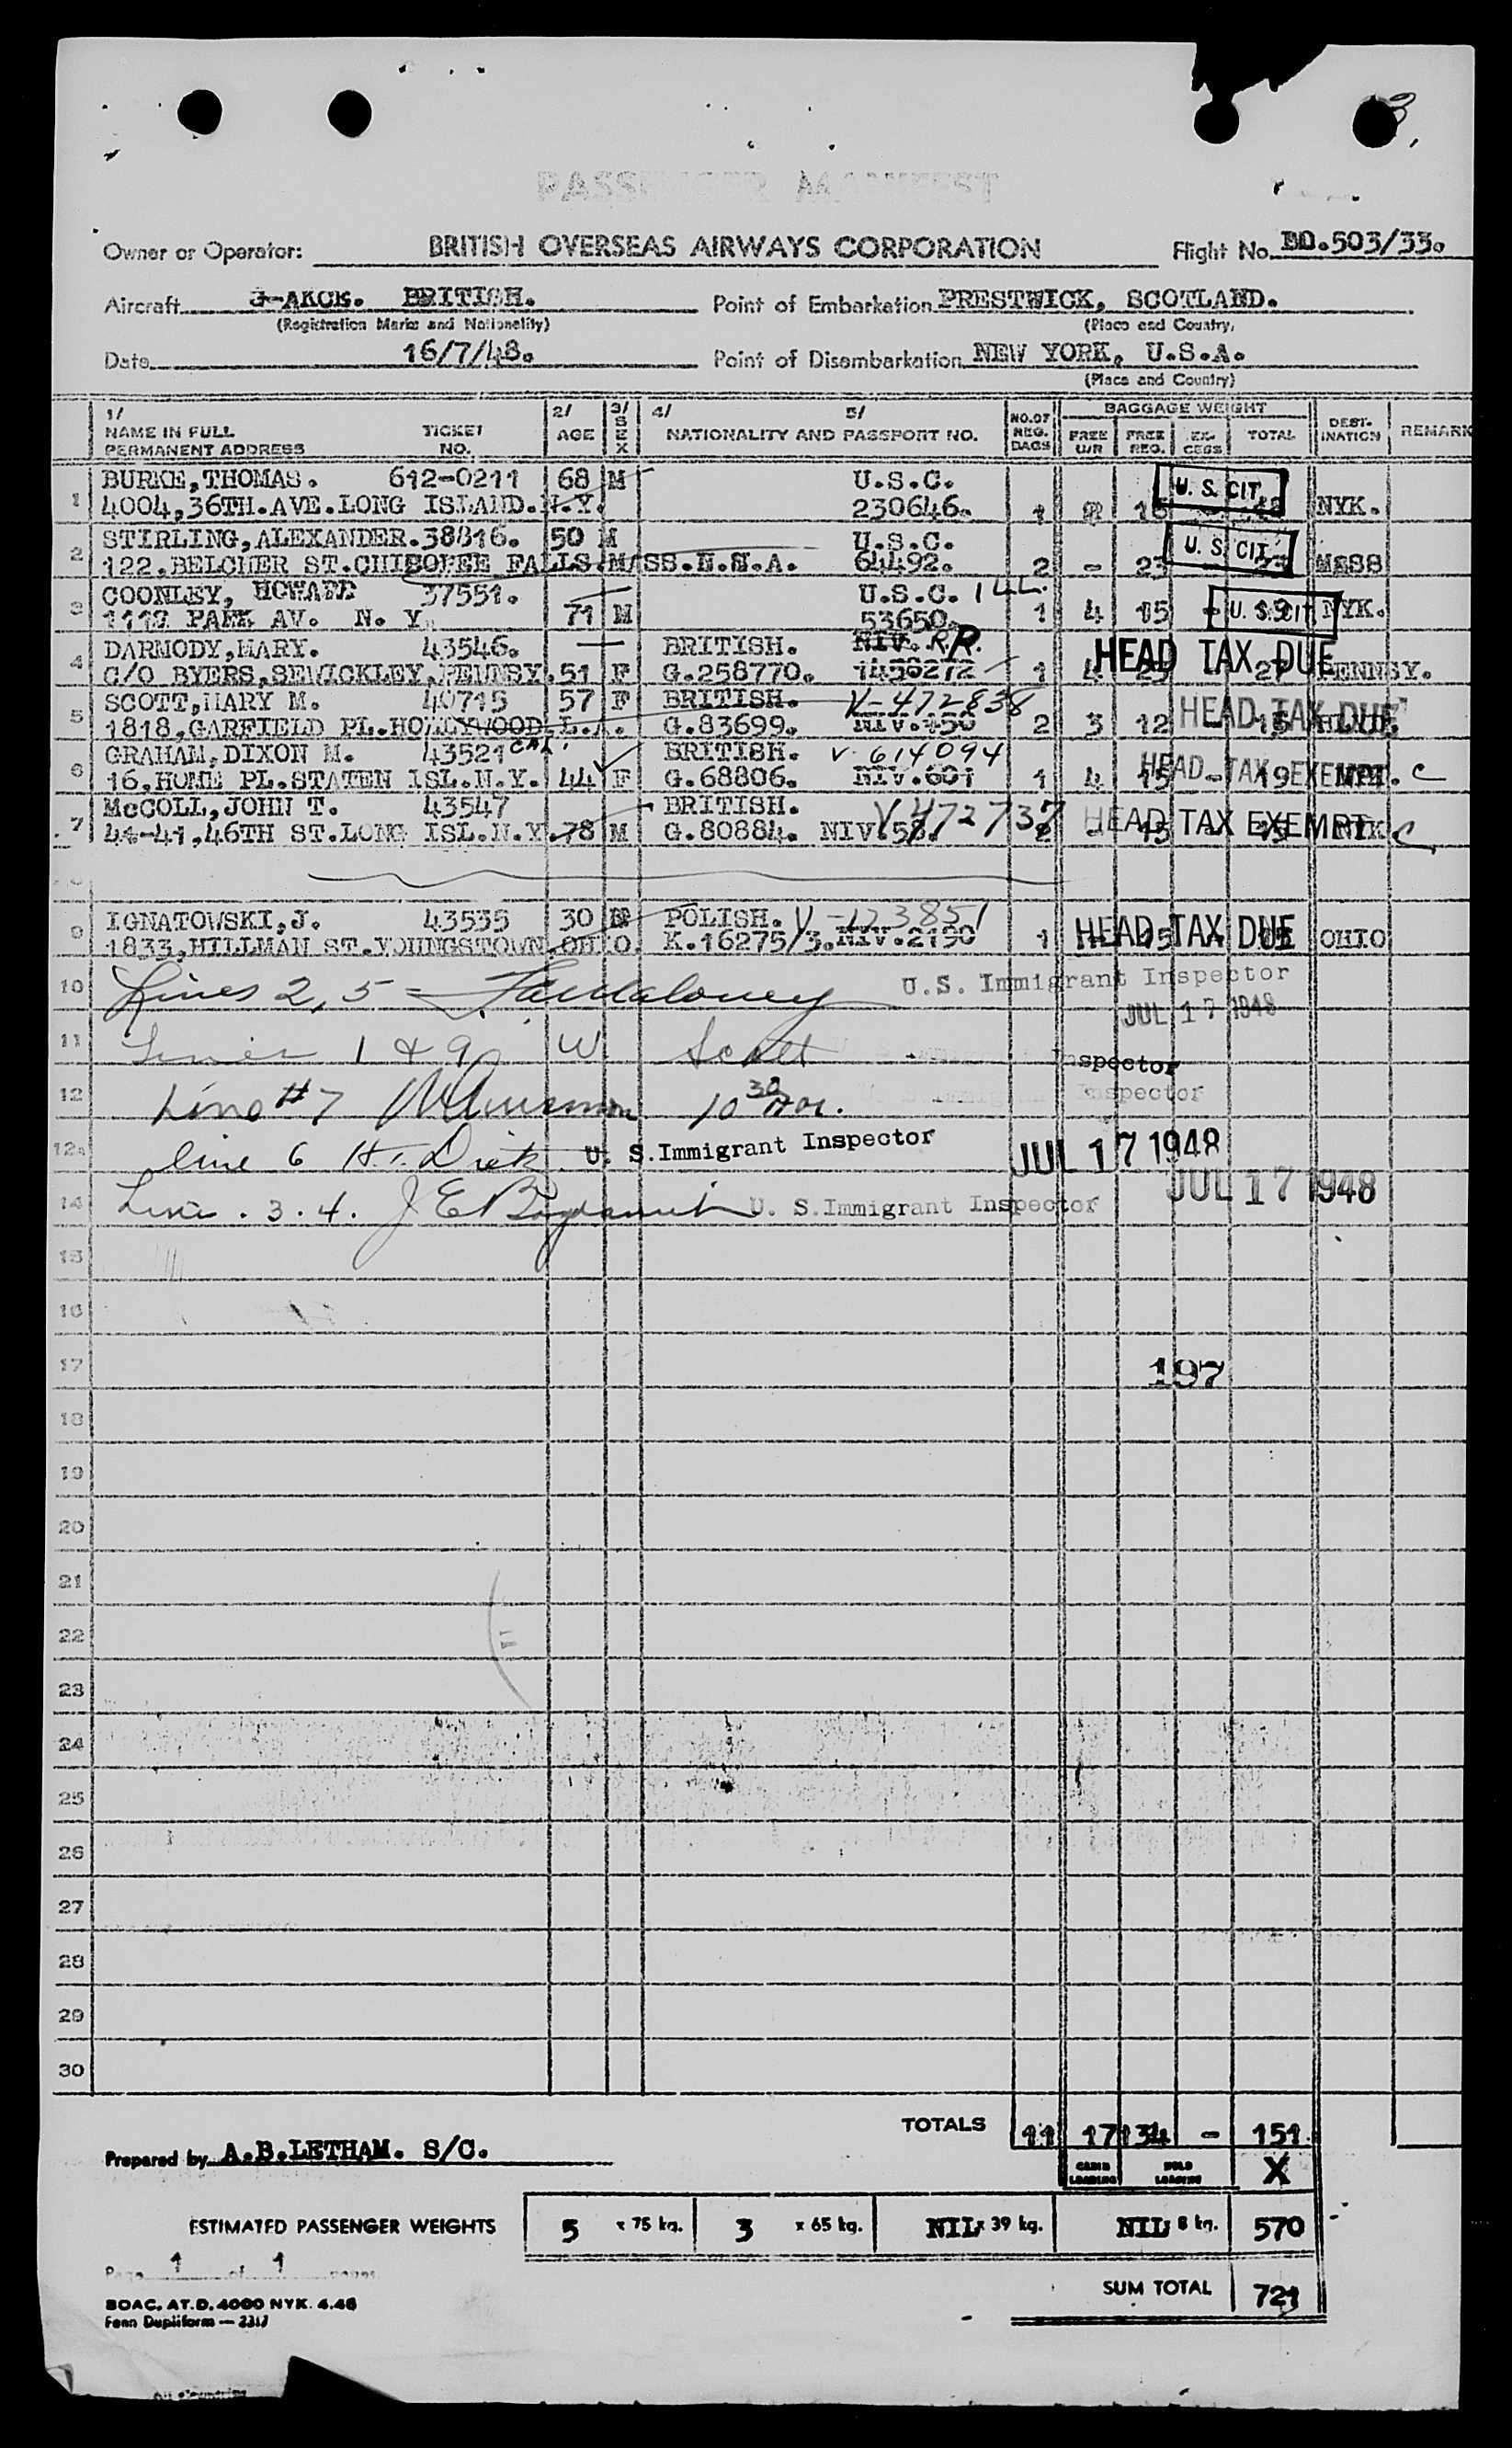 3.
PASSENGER MANIFEST
Owner or Operator: BRITISH OVERSEAS AIRWAYS CORPORATION Flight No. BO.503/33.
Aircraft G-AKCK. BRITISH. Point of Embarkation PRESTWICK, SCOTLAND.
(Registration Marks and Nationality) (Place and Country)
Date 16/7/48. Point of Disembarkation NEW YORK, U.S.A.
(Place and Country)
1/ NAME IN FULL PERMANENT ADDRESS TICKET NO. 2/ AGE 3/ SEX 4/ 5/ NATIONALITY AND PASSPORT NO. NO. OF REG. BAGS BAGGAGE WEIGHT FREE U/R FREE REG. EX-CESS TOTAL DEST-INATION REMARK
1 BURKE,THOMAS. 612-0211 68 M U.S.C. U. S. CIT.
4004,36TH.AVE.LONG ISLAND.N.Y. 230646. 1 NYK.
2 STIRLING,ALEXANDER.38816. 50 M U.S.C. U. S. CIT.
122.BELCHER ST.CHICOPEE FALLS.MASS. 64492. 2 - 23 - 23 MASS
3 COONLEY, HOWARD 37551. U.S.C.
PARK AV. N. Y. 71 M 53650. 1 4 15 - U. S. CIT. NYK.
4 DARMODY,MARY. 43546. BRITISH. NIV. RR. HEAD TAX DUE
C/O BYERS,SEWICKLEY,PENNSY. 51 F G.258770. 1 4 23 27 PENNSY.
5 SCOTT,MARY M. 40715 57 F BRITISH. V-472838 HEAD TAX DUE
1818,GARFIELD PL.HOLLYWOOD.L.A. CAL. G.83699. NIV.150 2 3 12 15 HLYD.
6 GRAHAM,DIXON M. 43521 BRITISH. V 614094 HEAD TAX EXEMPT
16,HOME PL.STATEN ISL.N.Y. 44 F G.68806. NIV.601 1 4 15 - 19 c
7 McCOLL,JOHN T. 43547 BRITISH. V472737 HEAD TAX EXEMPT
41-41,46TH ST.LONG ISL.N.Y. 78 M G.80884. NIV.58. 2 - 15 - 15 NYK c
9 IGNATOWSKI,J. 43535 30 M POLISH. V-123851 HEAD TAX DUE
1833,HILLMAN ST.YOUNGSTOWN.OHIO. K.16275/3.NIV.2190 1 15 OHIO
10 Lines 2,5 = U.S. Immigrant Inspector
JUL 17 1948
11 Lines 1 & 9 W. Scott Inspector
12 Line #7 10 30 Inspector
12a line 6 H. Dietz U. S. Immigrant Inspector JUL 17 1948
14 Lines . 3 . 4 . J E U. S. Immigrant Inspector JUL 17 1948
15
16
17 197
18
19
20
21
22
23
24
25
26
27
28
29
30
TOTALS 11 17 134 - 151
Prepared by A.B.LETHAM. S/C. CABIN LOADING HOLD LOADING X
ESTIMATED PASSENGER WEIGHTS 5 x 75 kg. 3 x 65 kg. NIL x 39 kg. NIL x 8 kg. 570
Page 1 of 1 pages
SUM TOTAL 721
BOAC. AT.D. 4000 NYK. 4.48
Fenn Dupliform — 2317